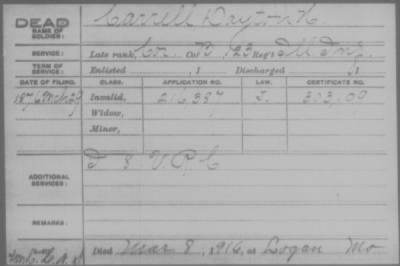 DEAD
NAME OF SOLDIER:
Carrell Dayton H.
SERVICE:
Late rank, Co. 123 Reg't Ill Inf.
TERM OF SERVICE:
Enlisted , 1 Discharged , 1
DATE OF FILING. CLASS. APPLICATION NO. LAW. CERTIFICATE NO.
1876 Mch 29 Invalid, 216,387
Widow,
Minor,
ADDITIONAL SERVICES:
I 3 V.R.C
REMARKS:
Died Mar 8, 1916, at Logan Mo